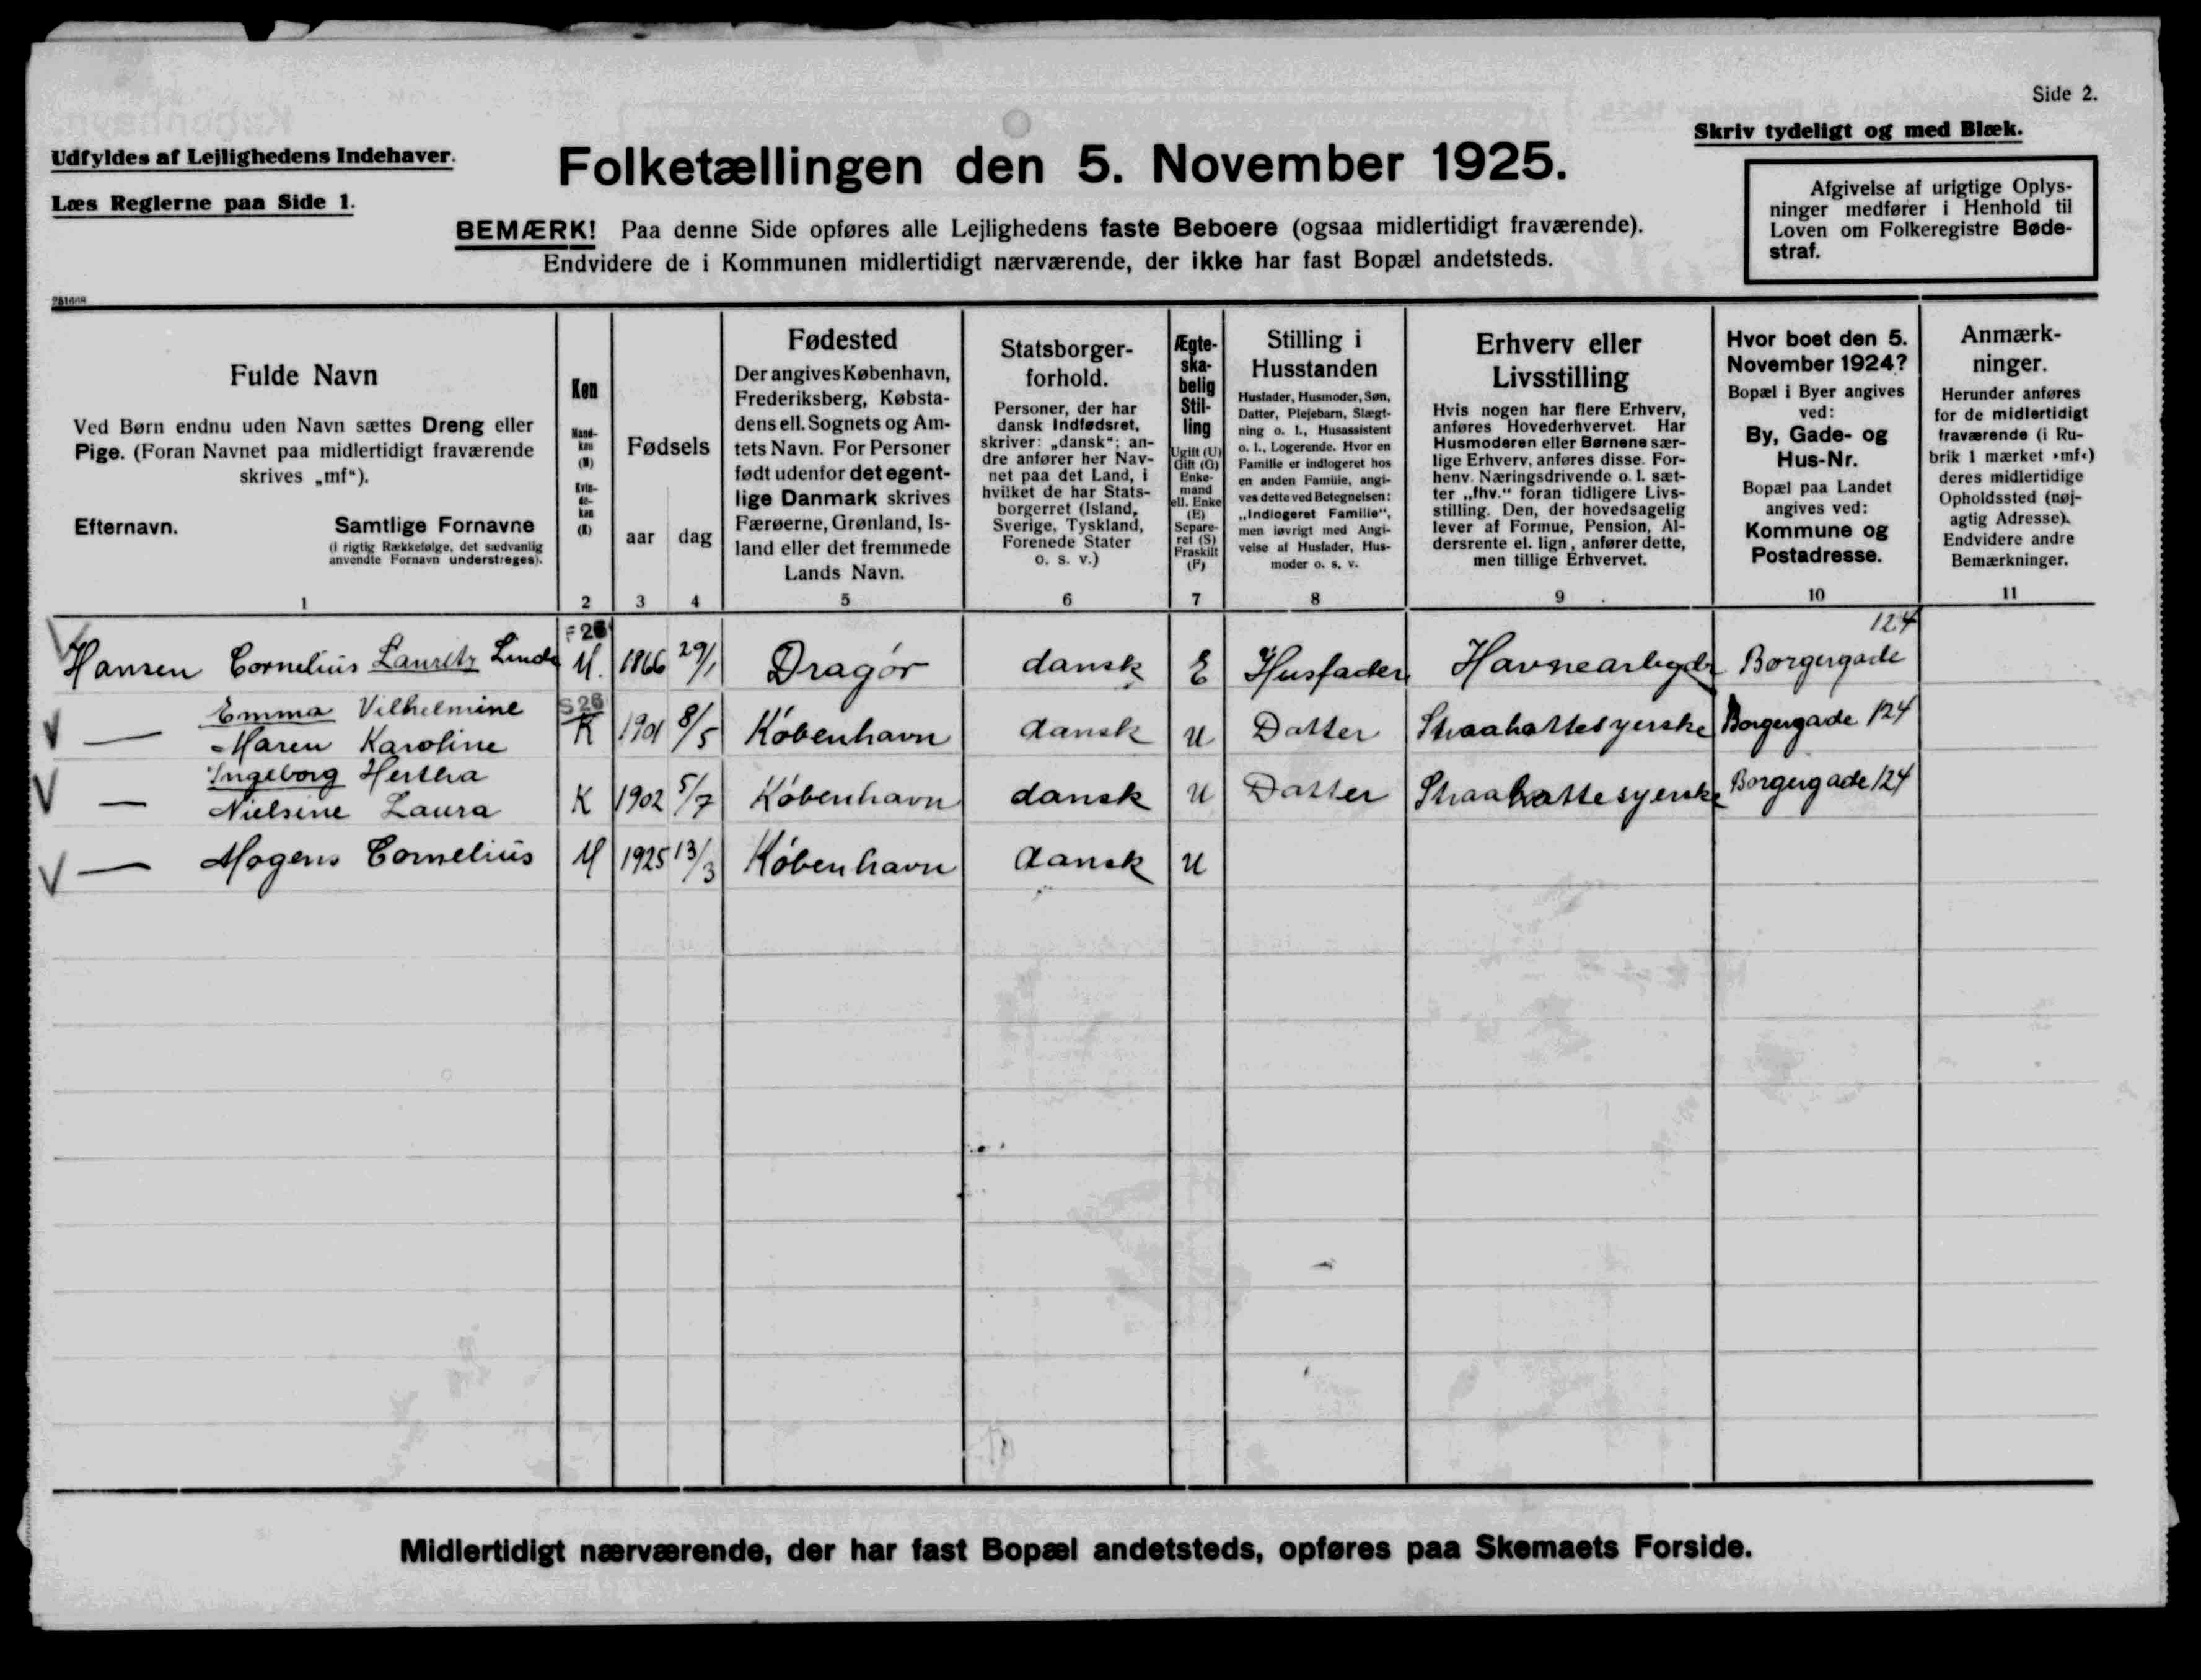 Side 2.
Udfyldes af Lejlighedens Indehaver.
Læs Reglerne paa Side 1.
Folketællingen den 5. November 1925.
Skriv tydeligt og med Blæk.
BEMÆRK! Paa denne Side opføres alle Lejlighedens faste Beboere (ogsaa midlertidigt fraværende).
Endvidere de i Kommunen midlertidigt nærværende, der ikke har fast Bopæl andetsteds.
Afgivelse af urigtige Oplys-
ninger medfører i Henhold til
Loven om Folkeregistre Bøde-
straf.
Fulde Navn
Ved Børn endnu uden Navn sættes Dreng eller
Pige. (Foran Navnet paa midlertidigt fraværende
skrives „mf“).
Efternavn. Samtlige Fornavne
(i rigtig Rækkefølge, det sædvanlig
anvendte Fornavn understreges).
1
Køn
Mand-
køn
(M)
Kvin-
de-
køn
(K)
2
Fødsels
aar dag
3 4
Fødested
Der angives København,
Frederiksberg, Købsta-
dens ell. Sognets og Am-
tets Navn. For Personer
født udenfor det egent-
lige Danmark skrives
Færøerne, Grønland, Is-
land eller det fremmede
Lands Navn.
5
Statsborger-
forhold.
Personer, der har
dansk Indfødsret,
skriver: „dansk“; an-
dre anfører her Nav-
net paa det Land, i
hvilket de har Stats-
borgerret (Island,
Sverige, Tyskland,
Forenede Stater
o. s. v.)
6
Ægte-
ska-
belig
Stil-
ling
Ugift (U)
Gift (G)
Enke-
mand
ell. Enke
(E)
Separe-
ret (S)
Fraskilt
(F)
7
Stilling i
Husstanden
Husfader, Husmoder, Søn,
Datter, Plejebarn, Slægt-
ning o. l., Husassistent
o. l., Logerende. Hvor en
Familie er indlogeret hos
en anden Familie, angi-
ves dette ved Betegnelsen:
„Indlogeret Familie“,
men iøvrigt med Angi-
velse af Husfader, Hus-
moder o. s. v.
8
Erhverv eller
Livsstilling
Hvis nogen har flere Erhverv,
anføres Hovederhvervet. Har
Husmoderen eller Børnene sær-
lige Erhverv, anføres disse. For-
henv. Næringsdrivende o. l. sæt-
ter „fhv.“ foran tidligere Livs-
stilling. Den, der hovedsagelig
lever af Formue, Pension, Al-
dersrente el. lign, anfører dette,
men tillige Erhvervet.
9
Hvor boet den 5.
November 1924?
Bopæl i Byer angives
ved:
By, Gade- og
Hus-Nr.
Bopæl paa Landet
angives ved:
Kommune og
Postadresse.
10
Anmærk-
ninger.
Herunder anføres
for de midlertidigt
fraværende (i Ru-
brik 1 mærket »mf«)
deres midlertidige
Opholdssted (nøj-
agtig Adresse).
Endvidere andre
Bemærkninger.
11
Hansen Cornelius Lauritz Linde M. 1866 29/1 Dragør dansk E Husfader Havnearbejder Borgergade 124
— Emma Vilhelmine
Maren Karoline K 1901 8/5 København dansk U Datter Straahattesyerske Borgergade 124
— Ingeborg Hertha
Nielsine Laura K 1902 5/7 København dansk U Datter Straahattesyerske Borgergade 124
— Mogens Cornelius M 1925 13/3 København dansk U
Midlertidigt nærværende, der har fast Bopæl andetsteds, opføres paa Skemaets Forside.